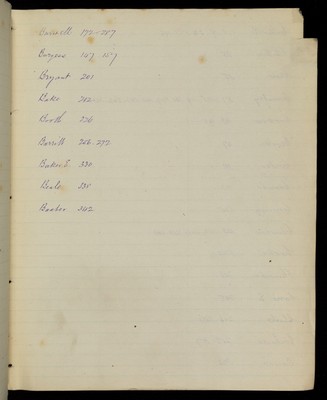 Burrell 192-257
Burgess 157.157
Bryant 201
Bake 202
Booth 226
Borrett 256.272
Baker S. 330
Beale 335
Barber 342